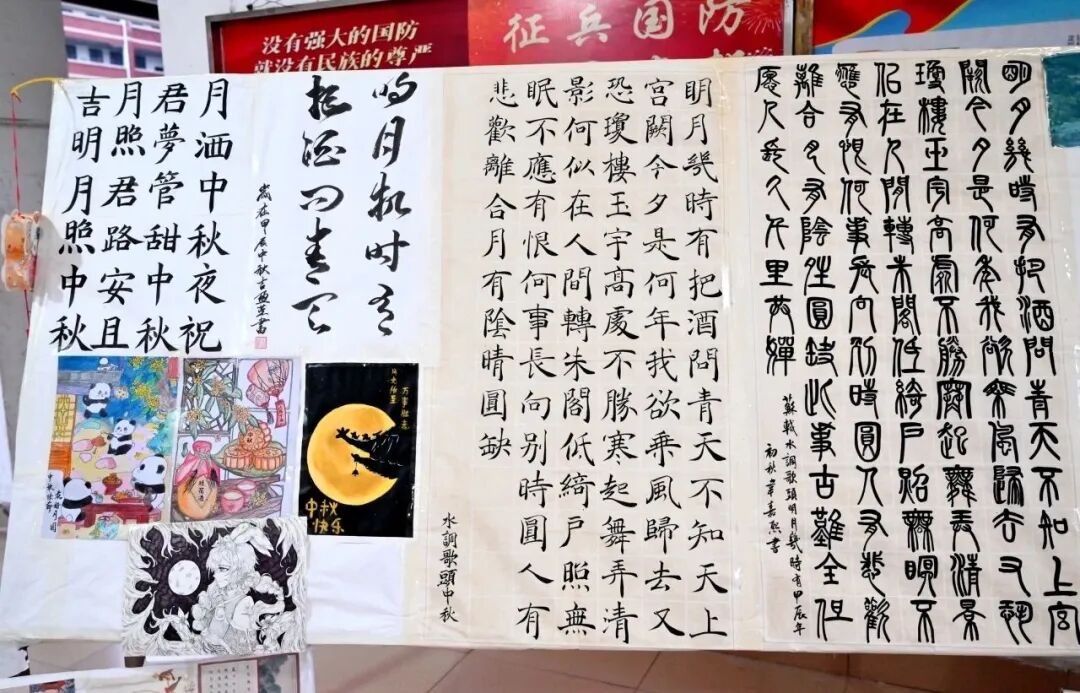 没有强大的国防
就没有民族的尊严
征兵国防
月洒中秋夜祝
君夢管甜中秋
月照君路安且
吉明月照中秋
明月幾时有
把酒问青天
明月幾時有把酒問青天不知天上
宮闕今夕是何年我欲乘風歸去又
恐瓊樓玉宇高處不勝寒起舞弄清
影何似在人間轉朱閣低綺戶照無
眠不應有恨何事長向别時圓人有
悲歡離合月有陰晴圓缺
水調歌頭中秋
明月幾時有把酒問青天不知上宮
闕今夕是何年我欲乘風歸去又恐
瓊樓玉宇高處不勝寒起舞弄清影
佀在人間轉朱閣低綺戶照無瞑不
應有恨何事長向別時圓人有悲歡
離合月有陰晴圓缺此事古難全但
願人長久千里共嬋
蘇軾水調歌頭明月幾時有甲辰年
初秋韋嘉熙書
花好月圆
中秋佳节
桂花酒
万事胜意
中秋
快乐